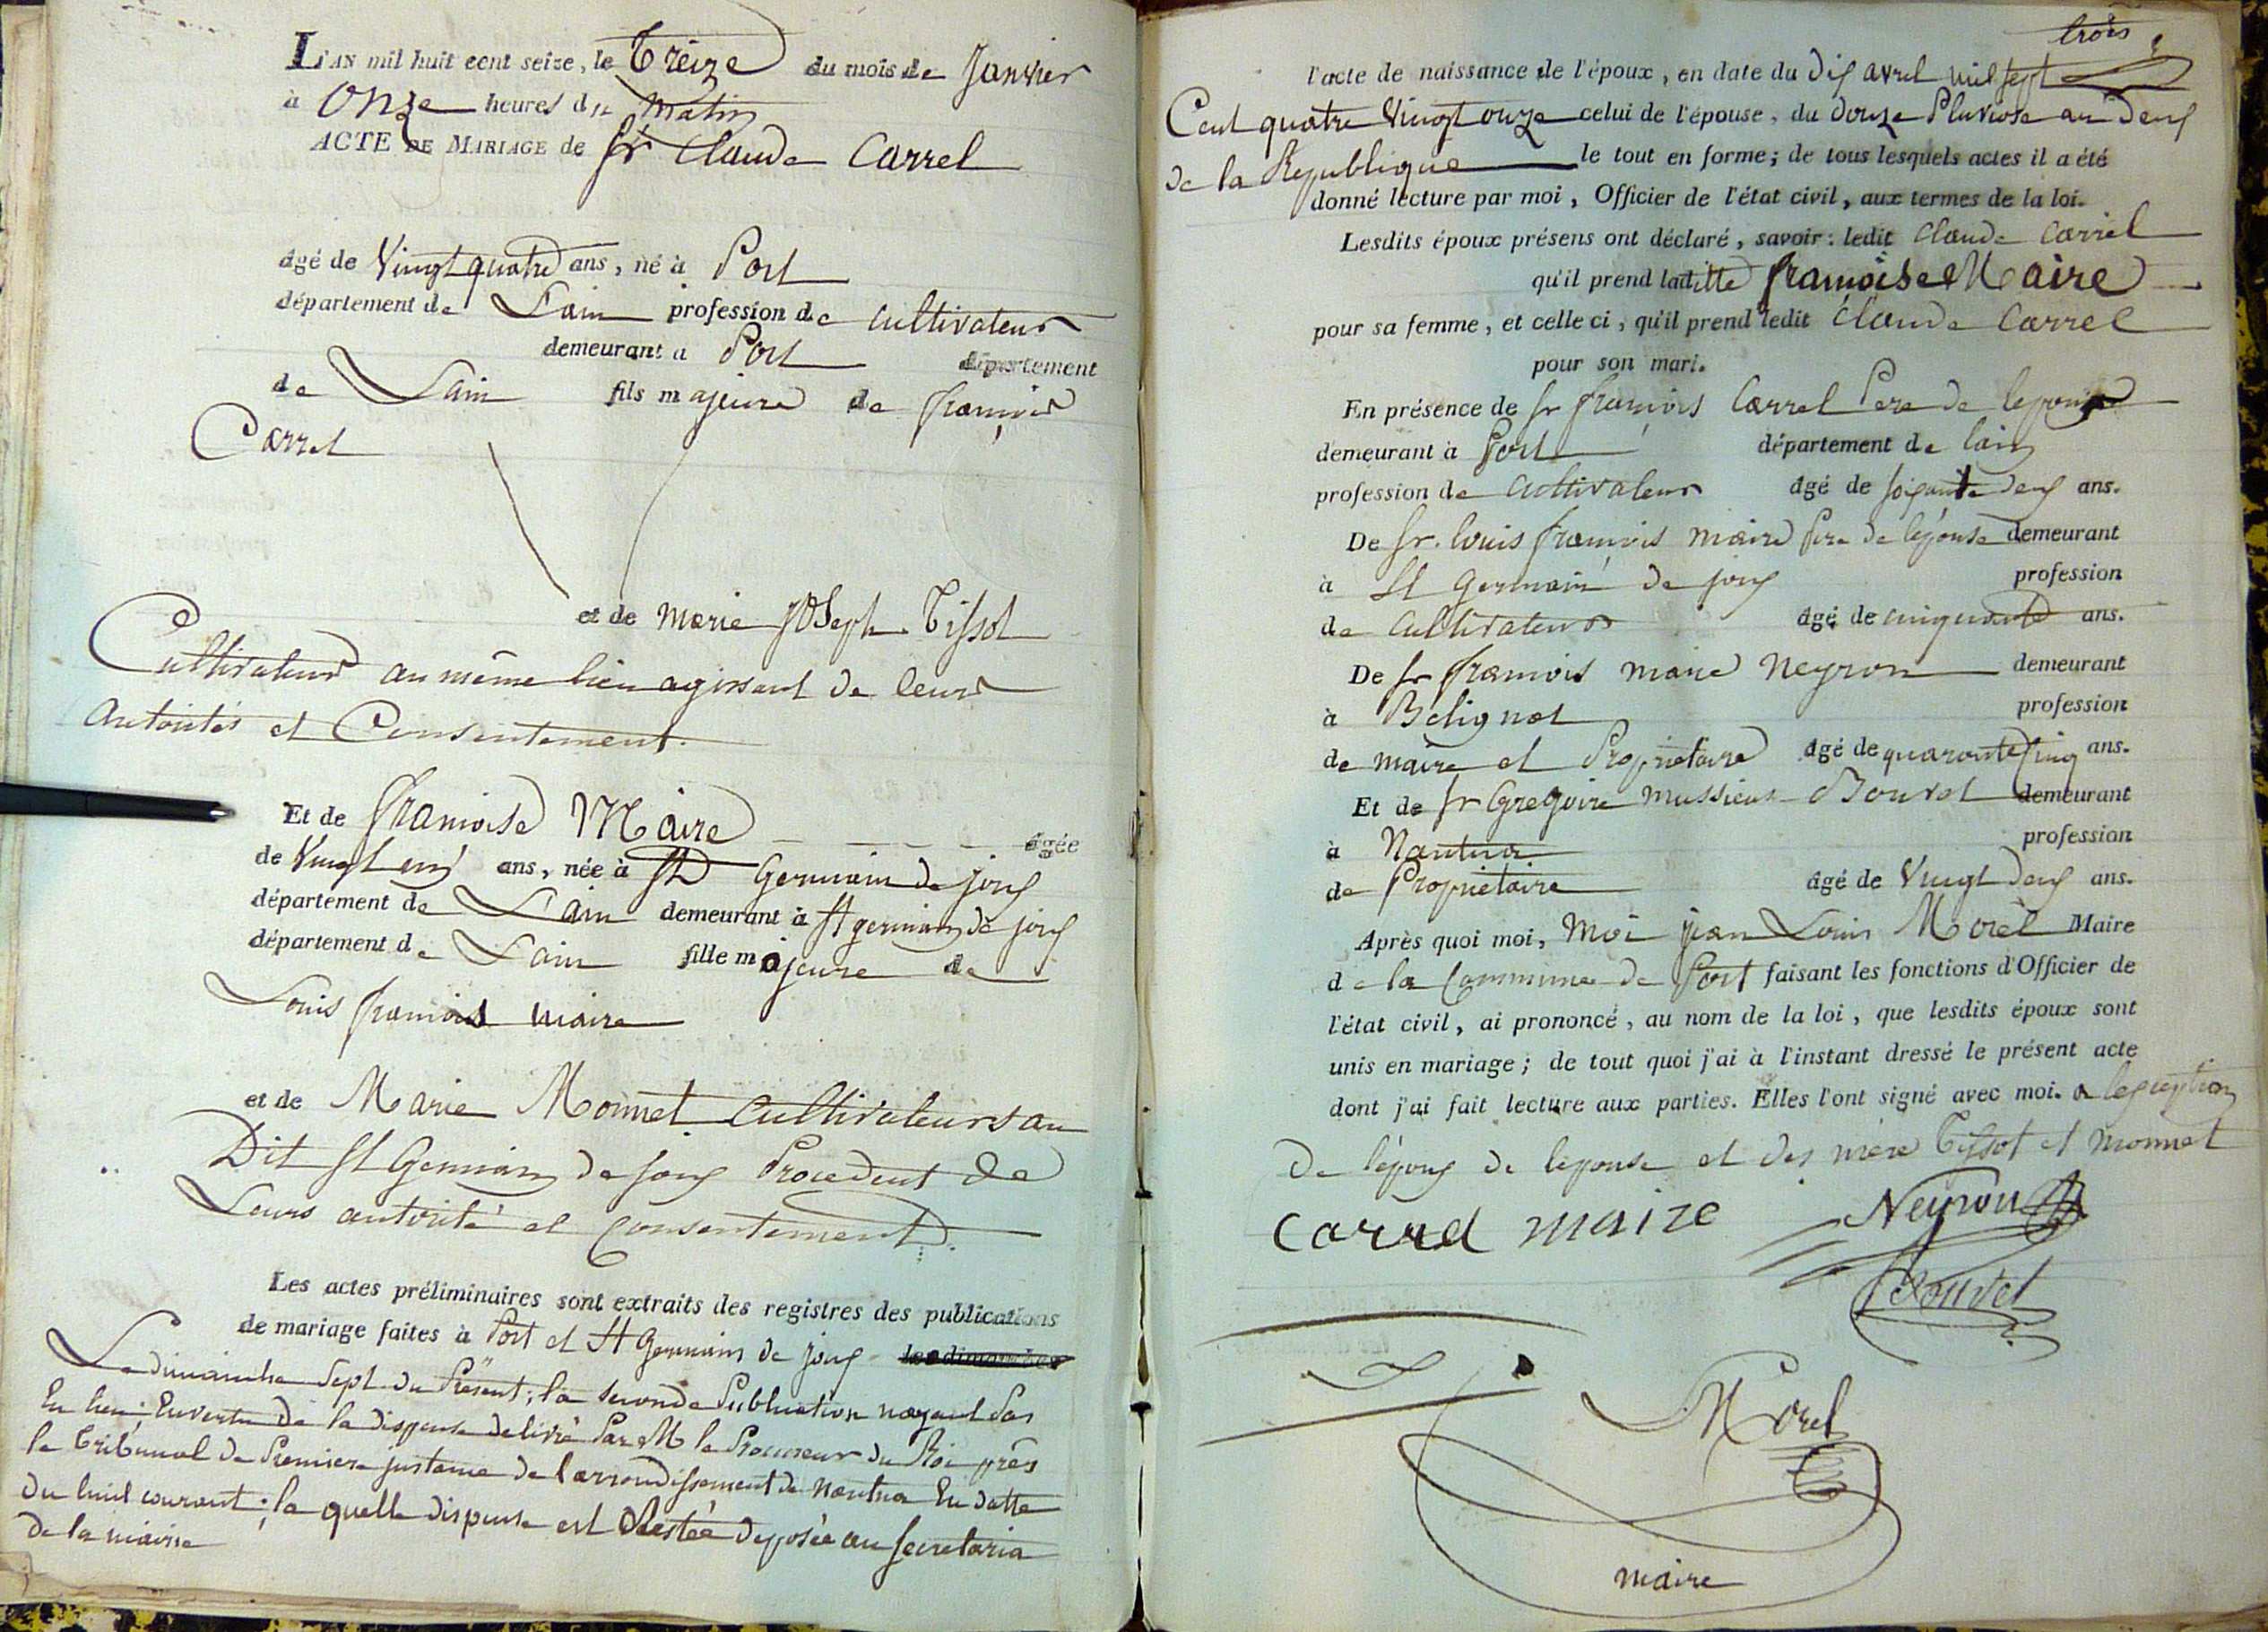 L'AN mil huit cent seize, le Treize du mois de Janvier
à Onze heures du Matin
ACTE DE MARIAGE de Sr Claude Carrel
âgé de Vingt quatre ans, né à Port
département de L'ain profession de cultivateur
demeurant à Port département
de L'ain fils majeure de françois
Carrel
et de marie JOSeph Tissot
Cultivateurs au même lieu agissant de leurs
Autorités et Consentement.
Et de françoise Maire âgée
de Vingt un ans, née à St Germain de joux
département de L'ain demeurant à St germain de joux
département de L'ain fille majeure de
Louis françois maire
et de Marie Monnet Cultivateurs au
Dit St Germain de Joux Procedent de
Leurs autorité et Consentement.
Les actes préliminaires sont extraits des registres des publications
de mariage faites à Port et St Germain de joux les dimanches
Le dimanche Sept du Présent; la seconde Publication nayant Pas
Eu lieu; En vertu de la dispense delivré Par M le Procureur du Roi près
le Tribunal de Premiere justance de l'arrondissement de Nantua En datte
du huit courant; la quelle dispense est Restée deposée au Secretaria
de la mairie
trois
l'acte de naissance de l'époux, en date du dix avril mil sept
Cent quatre Vingt onze celui de l'épouse, du douze Pluviose an deux
de la Republique le tout en forme; de tous lesquels actes il a été
donné lecture par moi, Officier de l'état civil, aux termes de la loi.
Lesdits époux présens ont déclaré, savoir: ledit Claude Carrel
qu'il prend laditte françoise Maire
pour sa femme, et celle ci, qu'il prend ledit Claude Carrel
pour son mari.
En présence de Sr françois Carrel Pere de lepoux
demeurant à Port département de lain
profession de Cultivateur âgé de soixante deux ans.
De Sr. louis françois maire Pere de lépouse demeurant
à St Germain de joux profession
de Cultivateur âgé de cinquante ans.
De Sr françois marie Neyron demeurant
à Belignat profession
de maire et Proprietaire âgé de quarante Cinq ans.
Et de Sr Gregoire Mussieux Bouvet demeurant
à Nantua profession
de Proprietaire âgé de Vingt deux ans.
Après quoi moi, Moi jean Louis Morel Maire
de la Commune de Port faisant les fonctions d'Officier de
l'état civil, ai prononcé, au nom de la loi, que lesdits époux sont
unis en mariage; de tout quoi j'ai à l'instant dressé le présent acte
dont j'ai fait lecture aux parties. Elles l'ont signé avec moi. a lexception
de lépoux de lepouse et des mere Tissot et Monnet
Carrel maire Neyron
Bouvet
Morel
maire